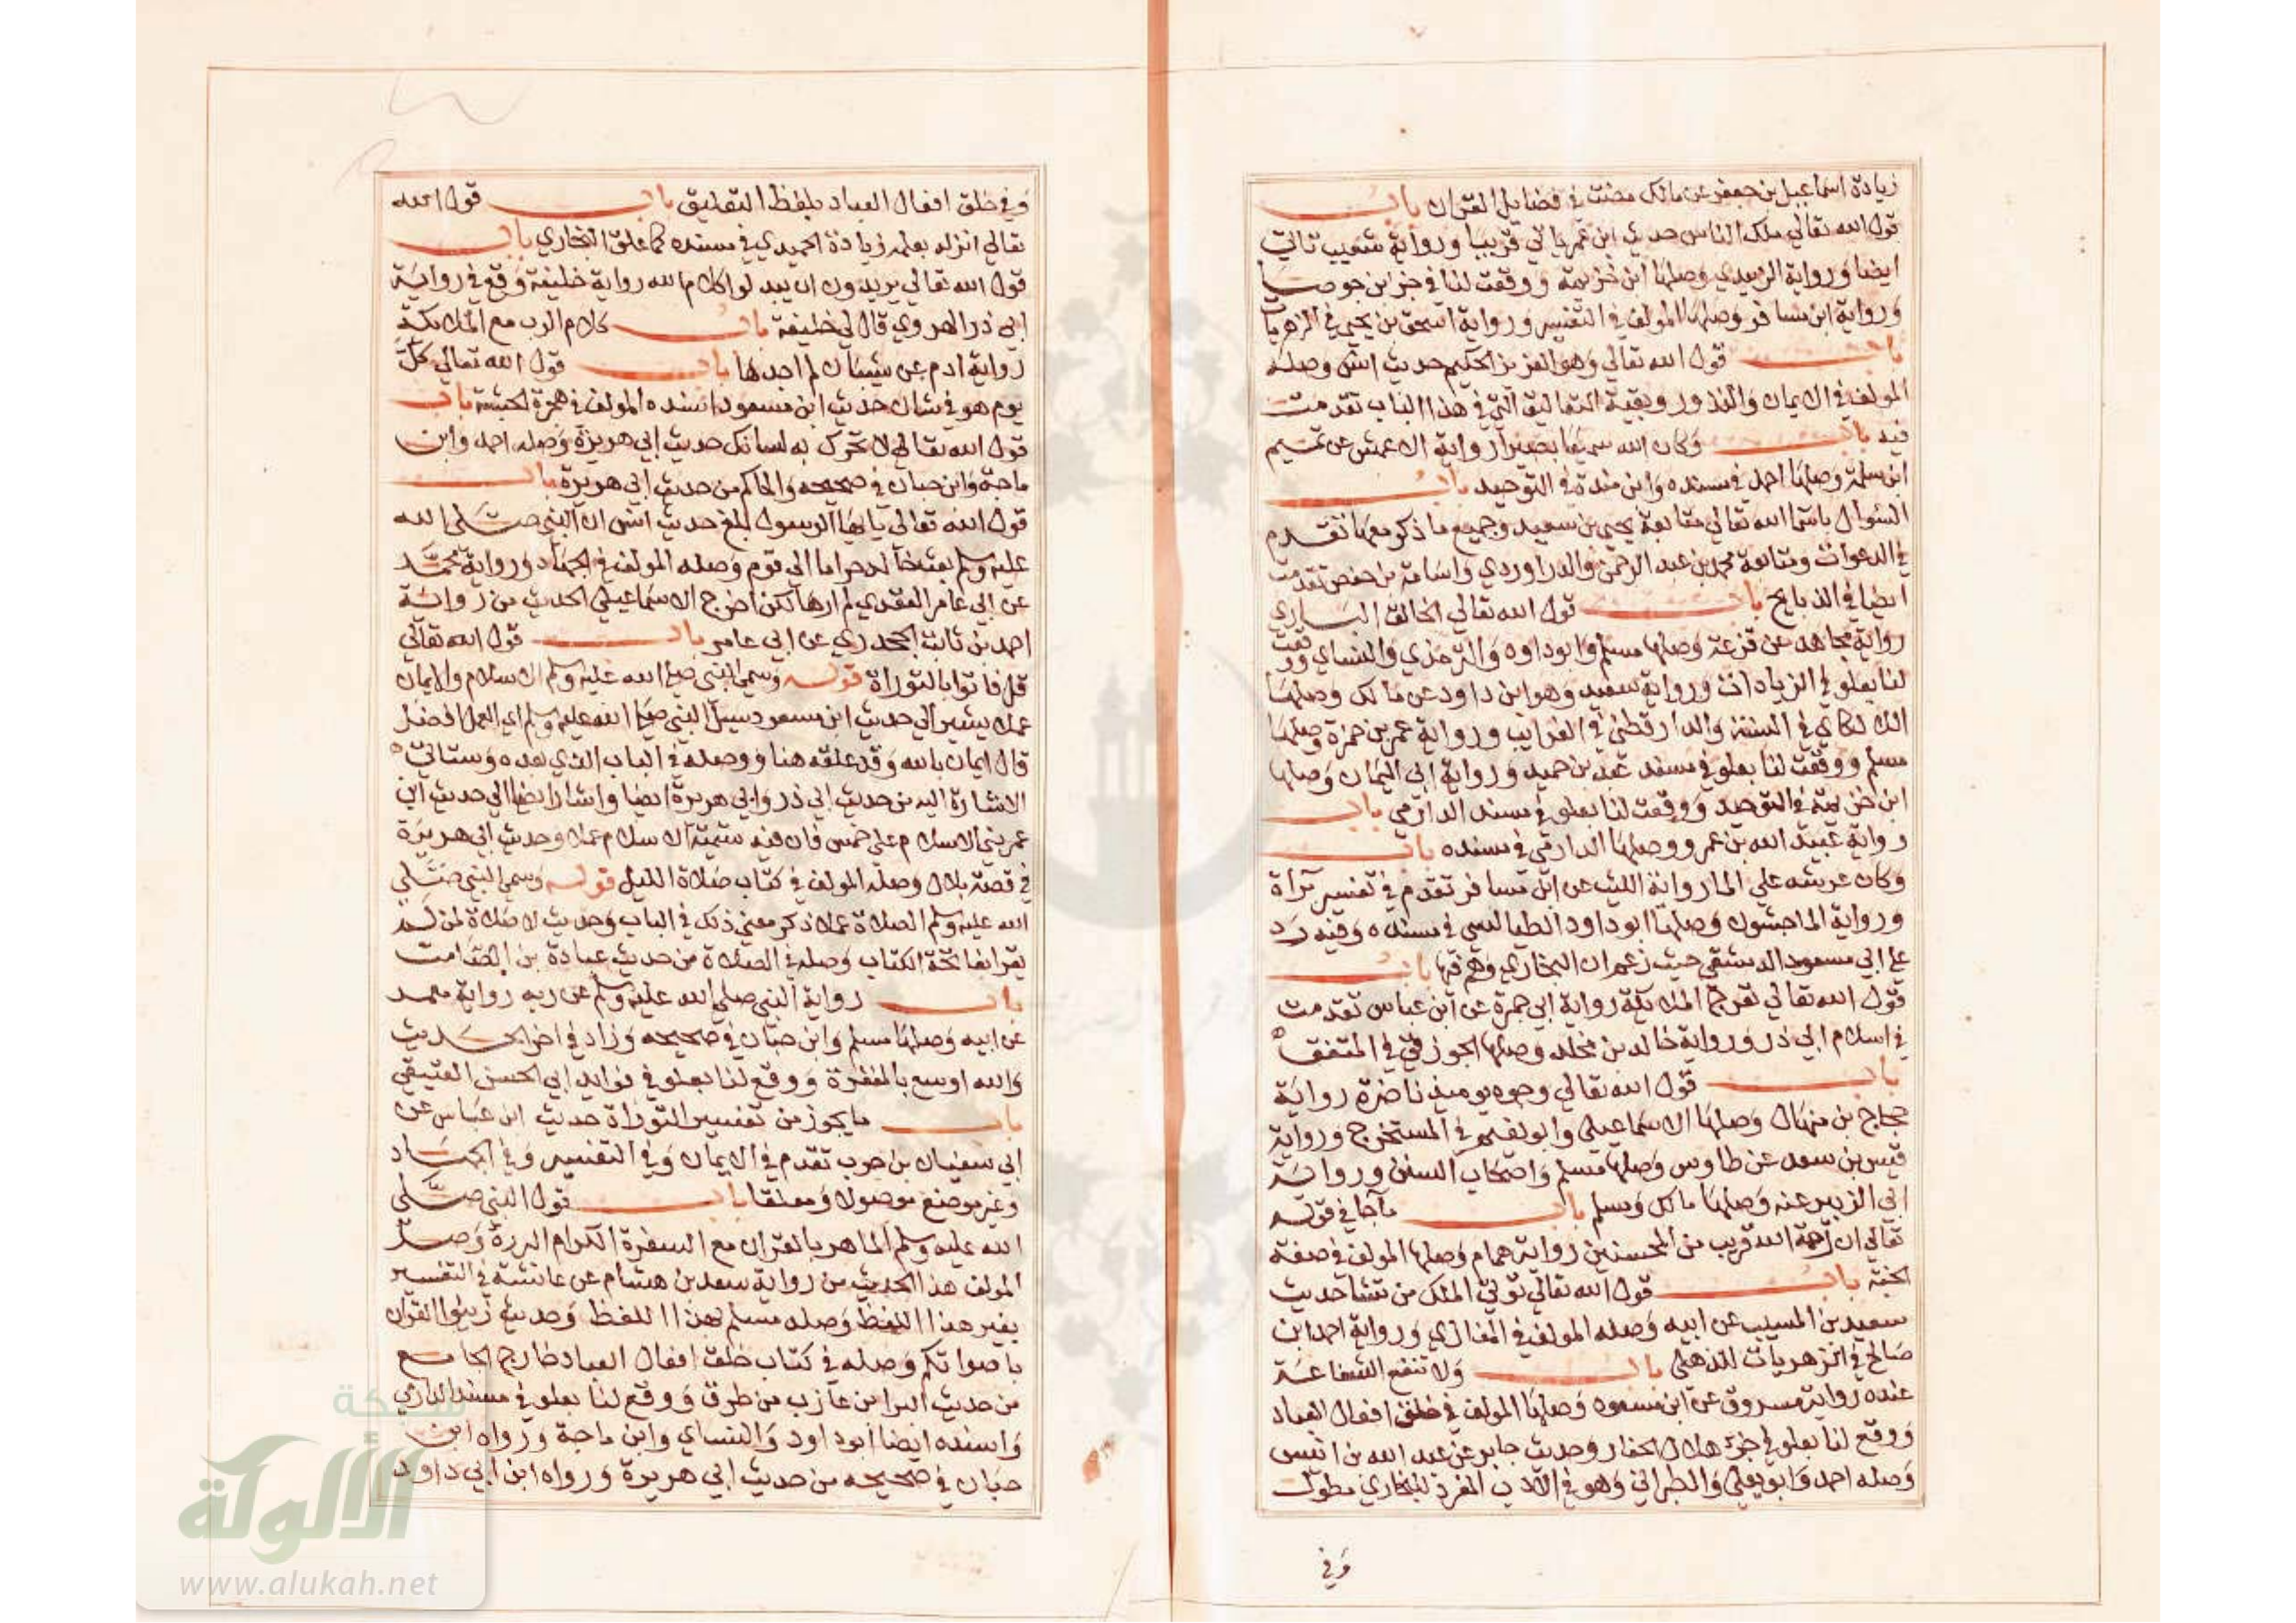 زيادة اسماعيل بن جعفر عن مالك مضت في فضايل القران باب
قول الله تعالي ملك الناس حديث ابن عمر ياتي قريبا ورواية شعيب تاتي
ايضا ورواية الزبيدي وصلها ابن خزيمة ووقعت لنا في جزء ابن جوصا
ورواية ابن مسافر وصلها المولف في التفسير ورواية اسحق بن يحيي في الزهريات
باب قول الله تعالي وهو العزيز الحكيم حديث انس وصله
المولف في الايمان والنذور وبقية التعاليق التي في هذا الباب تقدمت
فيه باب وكان الله سميعا بصيرا رواية الاعمش عن تميم
ابن سلمة وصلها احمد في مسنده وابن مندة في التوحيد باب
السوال باسما الله تعالي متابعة يحيي بن سعيد وجميع ما ذكر معها تقدم
في الدعوات ومتابعة محمد بن عبد الرحمن والدراوردي واسامة بن حفص تقدمت
ايضا في الذبايح باب قول الله تعالي الخالق الباري
رواية مجاهد عن قزعة وصلها مسلم وابو داود والترمذي والنساي ووقعت
لنا بعلو في الزيادات ورواية سعيد وهو ابن داود عن مالك وصلها
اللالكاي في السنة والدارقطني في الغرايب ورواية عمر بن حمزة وصلها
مسلم ووقعت لنا بعلو في مسند عبد بن حميد ورواية ابي اليمان وصلها
ابن خزيمة في التوحيد ووقعت لنا بعلو في مسند الدارمي باب
رواية عبيد الله بن عمرو وصلها الدارمي في مسنده باب
وكان عرشه علي الما رواية الليث عن ابن مسافر تقدم في تفسير براة
ورواية الماجشون وصلها ابو داود الطيالسي في مسنده وفيه رد
علي ابي مسعود الدمشقي حيث زعم ان البخاري وهم فيها باب
قول الله تعالي تعرج الملايكة رواية ابي جمرة عن ابن عباس تقدمت
في اسلام ابي ذر ورواية خالد بن مخلد وصلها الجوزقي في المتفق
باب قول الله تعالي وجوه يوميذ ناضرة رواية
حجاج بن منهال وصلها الاسماعيلي وابو نعيم في المستخرج ورواية
قيس بن سعد عن طاوس وصلها مسلم واصحاب السنن ورواية
ابي الزبير عنه وصلها مالك ومسلم باب ماجا في قوله
تعالي ان رحمة الله قريب من المحسنين رواية همام وصلها المولف في صفة
الجنة باب قول الله تعالي توتي الملك من تشا حديث
سعيد بن المسيب عن ابيه وصله المولف في المغازي ورواية احمد ابن
صالح في الزهريات للذهلي باب ولا تنفع الشفاعة
عنده رواية مسروق عن ابن مسعود وصلها المولف في خلق افعال العباد
ووقع لنا بعلو في جزء هلال الحفار وحديث جابر عن عبد الله بن انيس
وصله احمد وابو يعلي والطبراني وهو في الادب المفرد للبخاري مطولا
وفي
وفي خلق افعال العباد بلفظ التعليق باب قول الله
تعالي انزله بعلمه زيادة الحميدي في مسنده كما علق البخاري باب
قول الله تعالي يريدون ان يبدلوا كلام الله رواية خليفة وقع في رواية
ابي ذر الهروي قال لي خليفة باب كلام الرب مع الملايكة
رواية ادم عن شيبان لم اجدها باب قول الله تعالي كل
يوم هو في شان حديث ابن مسعود اسنده المولف في هجرة الحبشة باب
قول الله تعالي لا تحرك به لسانك حديث ابي هريرة وصله احمد وابن
ماجة وابن حبان في صحيحه والحاكم من حديث ابي هريرة باب
قول الله تعالي يايها الرسول بلغ حديث انس ان النبي صلي الله
عليه وسلم بعث خاله حراما الي قوم وصله المولف في الجهاد ورواية محمد
عن ابي عامر العقدي لم ارها لكن اخرج الاسماعيلي الحديث من رواية
احمد بن ثابت الجحدري عن ابي عامر باب قول الله تعالي
قل فاتوا بالتوراة قوله وسمي النبي صلي الله عليه وسلم الاسلام والايمان
عملا يشير الي حديث ابن مسعود سيل النبي صلي الله عليه وسلم اي العمل افضل
قال ايمان بالله وقد علقه هنا ووصله في الباب الذي بعده وستاتي
الاشارة اليه من حديث ابي ذر وابي هريرة ايضا واشار ايضا الي حديث ابن
عمر بني الاسلام علي خمس فان فيه تسمية الاسلام عملا وحديث ابي هريرة
في قصة بلال وصله المولف في كتاب صلاة الليل قوله وسمي النبي صلي
الله عليه وسلم الصلاة عملا ذكر معني ذلك في الباب وحديث لا صلاة لمن لم
يقرا بفاتحة الكتاب وصله في الصلاة من حديث عبادة بن الصامت
باب رواية النبي صلي الله عليه وسلم عن ربه رواية معمر
عن ابيه وصلها مسلم وابن حبان في صحيحه وزاد في اخر الحديث
والله اوسع بالمغفرة ووقع لنا بعلو في فوايد ابي الحسن العتيقي
باب ما يجوز من تفسير التوراة حديث ابن عباس عن
ابي سفيان بن حرب تقدم في الايمان وفي التفسير وفي الجهاد
وغير موضع موصولا ومعلقا باب قول النبي صلي
الله عليه وسلم الماهر بالقران مع السفرة الكرام البررة وصل
المولف هذا الحديث من رواية سعد بن هشام عن عائشة في التفسير
بغير هذا اللفظ وصله مسلم بهذا اللفظ وحديث زينوا القران
باصواتكم وصله في كتاب خلق افعال العباد خارج الجامع
من حديث البرا بن عازب من طرق ووقع لنا بعلو في مسند الدارمي
واسنده ايضا ابو داود والنساي وابن ماجة ورواه ابن
حبان في صحيحه من حديث ابي هريرة ورواه ابن ابي داود
شبكة
الألوكة
www.alukah.net